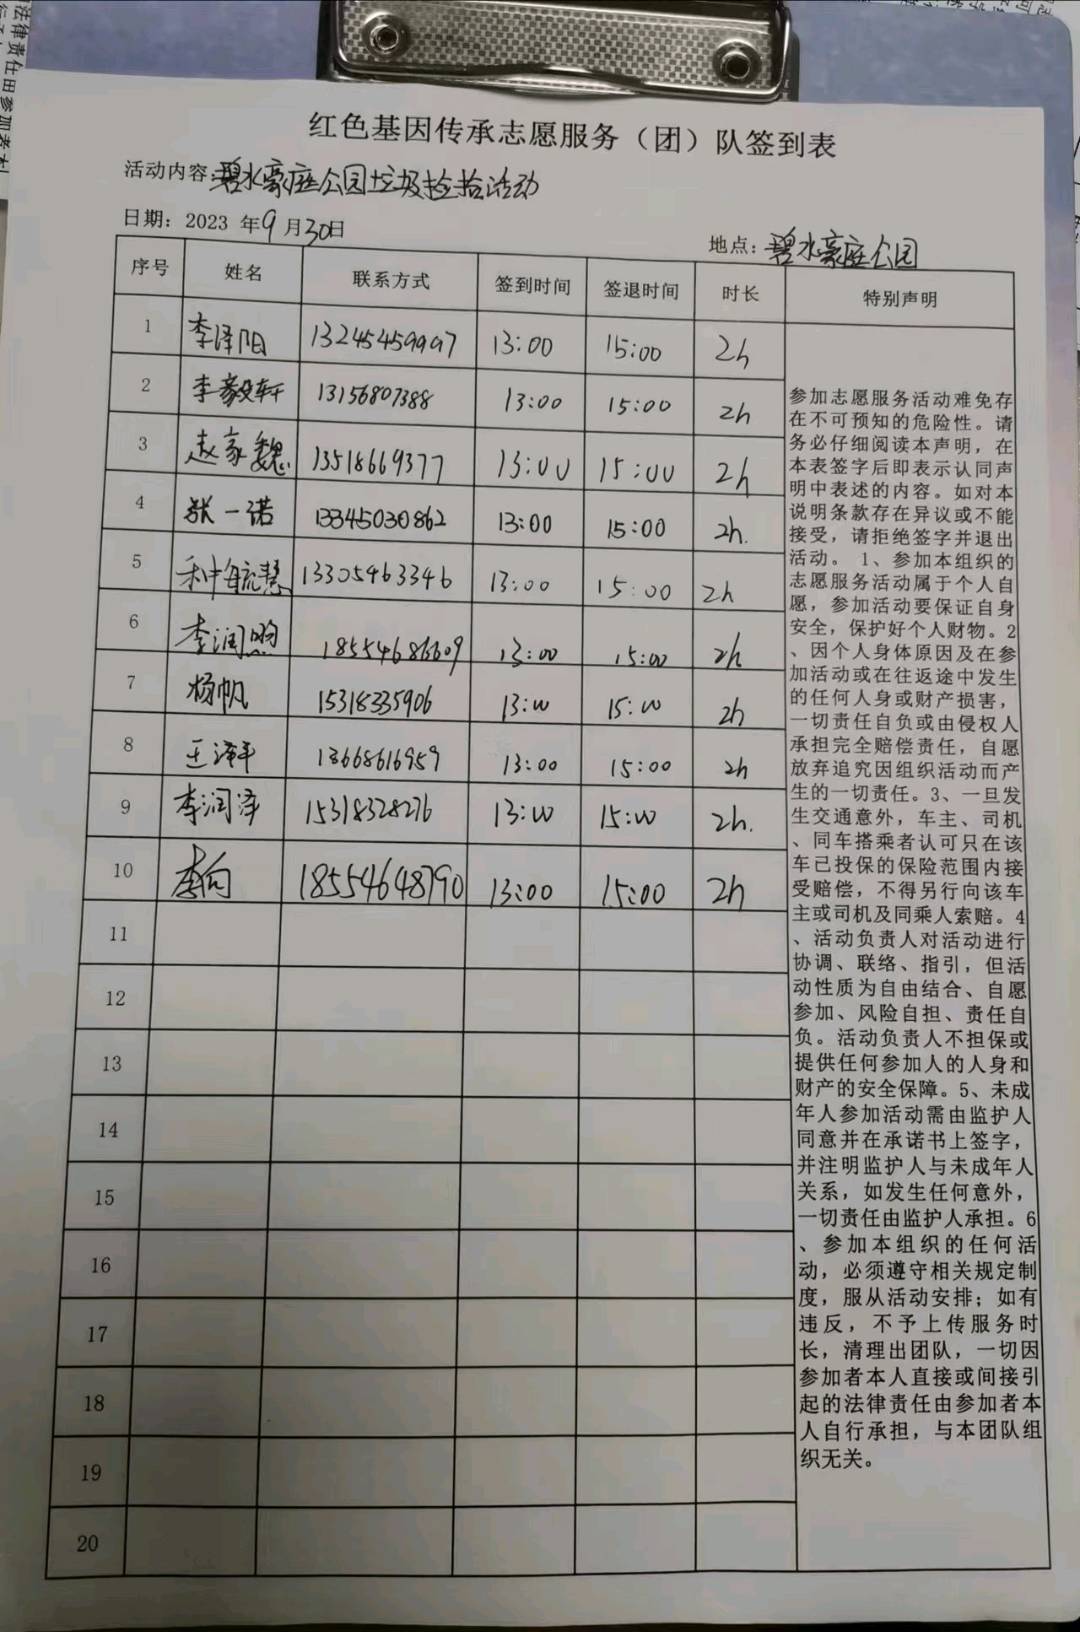 红色基因传承志愿服务（团）队签到表
活动内容：碧水豪庭公园垃圾捡拾活动
日期：2023 年9月30日
地点：碧水豪庭公园
序号 姓名 联系方式 签到时间 签退时间 时长 特别声明
1 李泽阳 13245459997 13:00 15:00 2h
2 李毅轩 13156807388 13:00 15:00 2h
3 赵家魏 13518669377 13:00 15:00 2h
4 张一诺 13345030862 13:00 15:00 2h.
5 13305463346 13:00 15:00 2h
6 李润 18554686609 13:00 15:00 2h
7 杨帆 15318335906 13:00 15:00 2h
8 王泽平 13668616959 13:00 15:00 2h
9 李润泽 15318328276 13:00 15:00 2h.
10 李向 18554648790 13:00 15:00 2h
11
12
13
14
15
16
17
18
19
20
参加志愿服务活动难免存
在不可预知的危险性。请
务必仔细阅读本声明，在
本表签字后即表示认同声
明中表述的内容。如对本
说明条款存在异议或不能
接受，请拒绝签字并退出
活动。 1、参加本组织的
志愿服务活动属于个人自
愿，参加活动要保证自身
安全，保护好个人财物。2
、因个人身体原因及在参
加活动或在往返途中发生
的任何人身或财产损害，
一切责任自负或由侵权人
承担完全赔偿责任，自愿
放弃追究因组织活动而产
生的一切责任。3、一旦发
生交通意外，车主、司机
、同车搭乘者认可只在该
车已投保的保险范围内接
受赔偿，不得另行向该车
主或司机及同乘人索赔。4
、活动负责人对活动进行
协调、联络、指引，但活
动性质为自由结合、自愿
参加、风险自担、责任自
负。活动负责人不担保或
提供任何参加人的人身和
财产的安全保障。5、未成
年人参加活动需由监护人
同意并在承诺书上签字，
并注明监护人与未成年人
关系，如发生任何意外，
一切责任由监护人承担。6
、参加本组织的任何活
动，必须遵守相关规定制
度，服从活动安排；如有
违反，不予上传服务时
长，清理出团队，一切因
参加者本人直接或间接引
起的法律责任由参加者本
人自行承担，与本团队组
织无关。